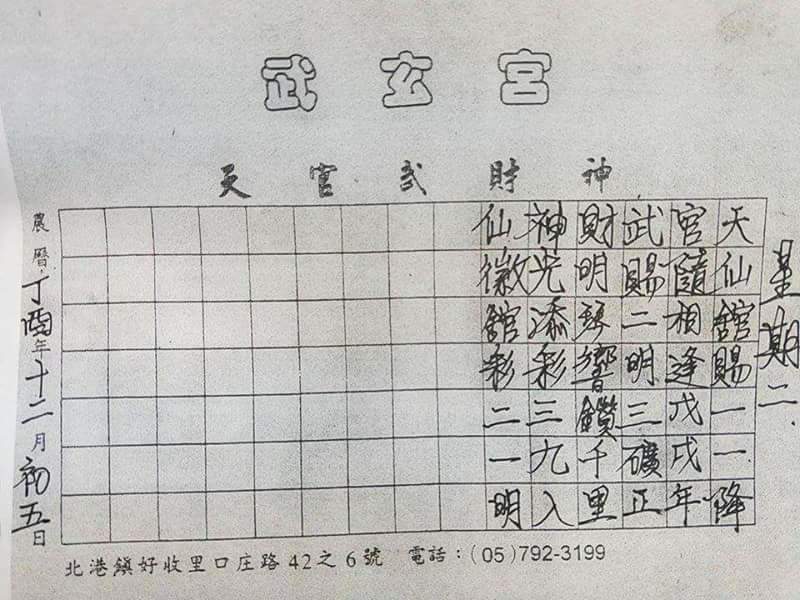 武玄宮
天官武財神
星期二
天仙舘賜一一降
官隨相逢戊戌年
武賜二明三礦正
財明琴響鑽千里
神光添彩三九入
仙徽舘彩二一明
農曆丁酉年十二月初五日
北港鎮好收里口庄路42之6號 電話：(05)792-3199